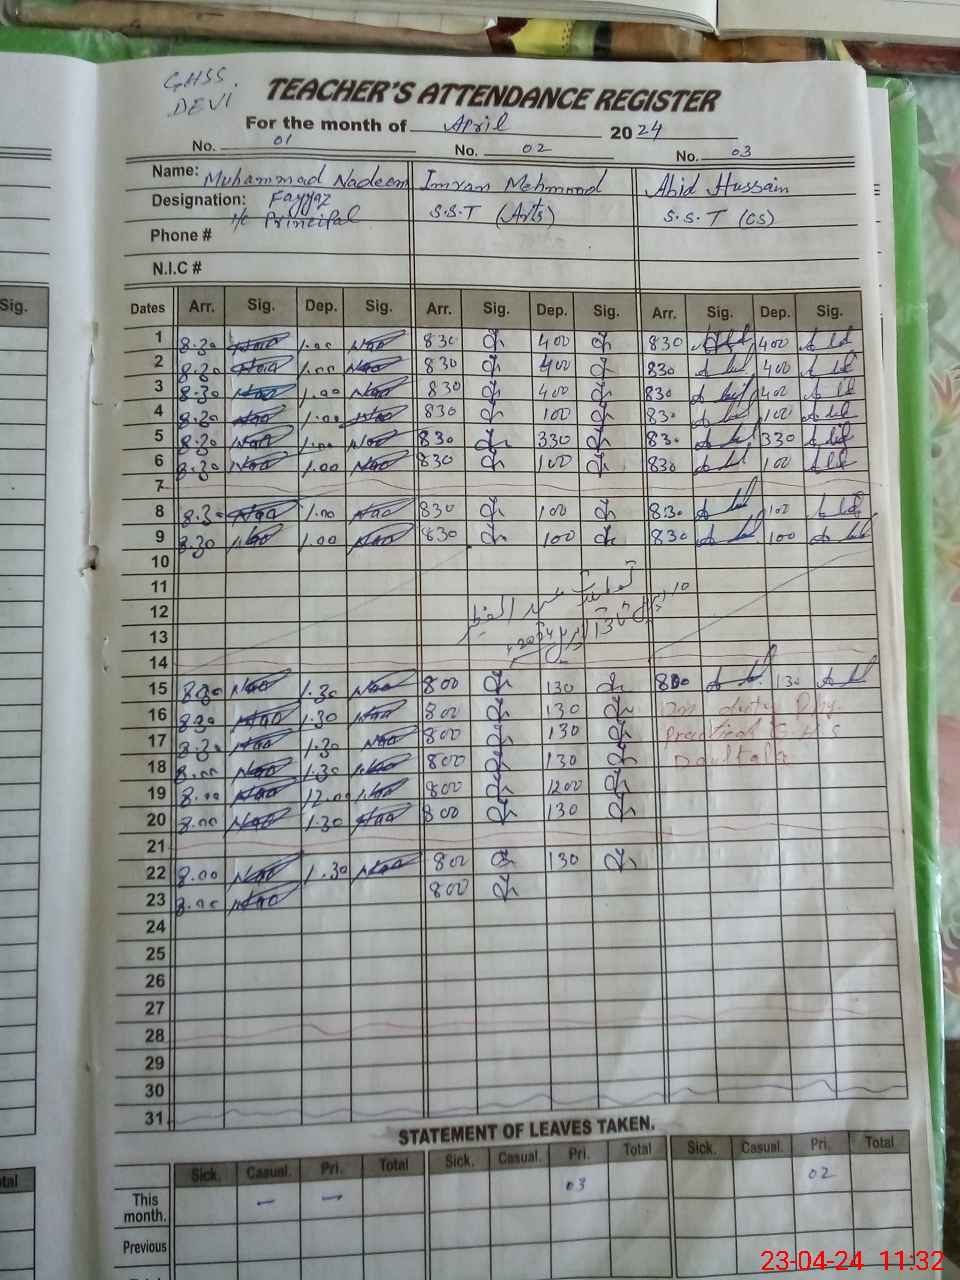 GHSS.
DEVI
TEACHER'S ATTENDANCE REGISTER
For the month of April 2024
No. 01 No. 02 No. 03
Name: Muhammad Nadeem Fayyaz Imran Mehmood Abid Hussain
Designation: I/c Principal S.S.T (Arts) S.S.T (CS)
Phone #
N.I.C #
Dates Arr. Sig. Dep. Sig. Arr. Sig. Dep. Sig. Arr. Sig. Dep. Sig.
1 8.30 1.00 830 400 830 400
2 8.30 1.00 830 400 830 400
3 8.30 1.00 830 400 830 400
4 8.30 1.00 830 100 830 100
5 8.30 1.00 830 330 830 330
6 8.30 1.00 830 100 830 100
7
8 8.30 1.00 830 100 830 100
9 8.30 1.00 830 100 830 100
10
11
12
13
14
15 8.30 1.30 800 130 800 130
16 830 1.30 800 130 On duty Phy.
17 8.30 1.30 800 130 Practical G.H.S
18 8.00 1.30 800 130 Daultala
19 8.00 12.00 800 1200
20 8.00 1.30 800 130
21
22 8.00 1.30 800 130
23 8.00 800
24
25
26
27
28
29
30
31
STATEMENT OF LEAVES TAKEN.
Sick. Casual. Pri. Total Sick. Casual. Pri. Total Sick. Casual. Pri. Total
This month. – – 03 02
Previous
Sig.
23-04-24 11:32